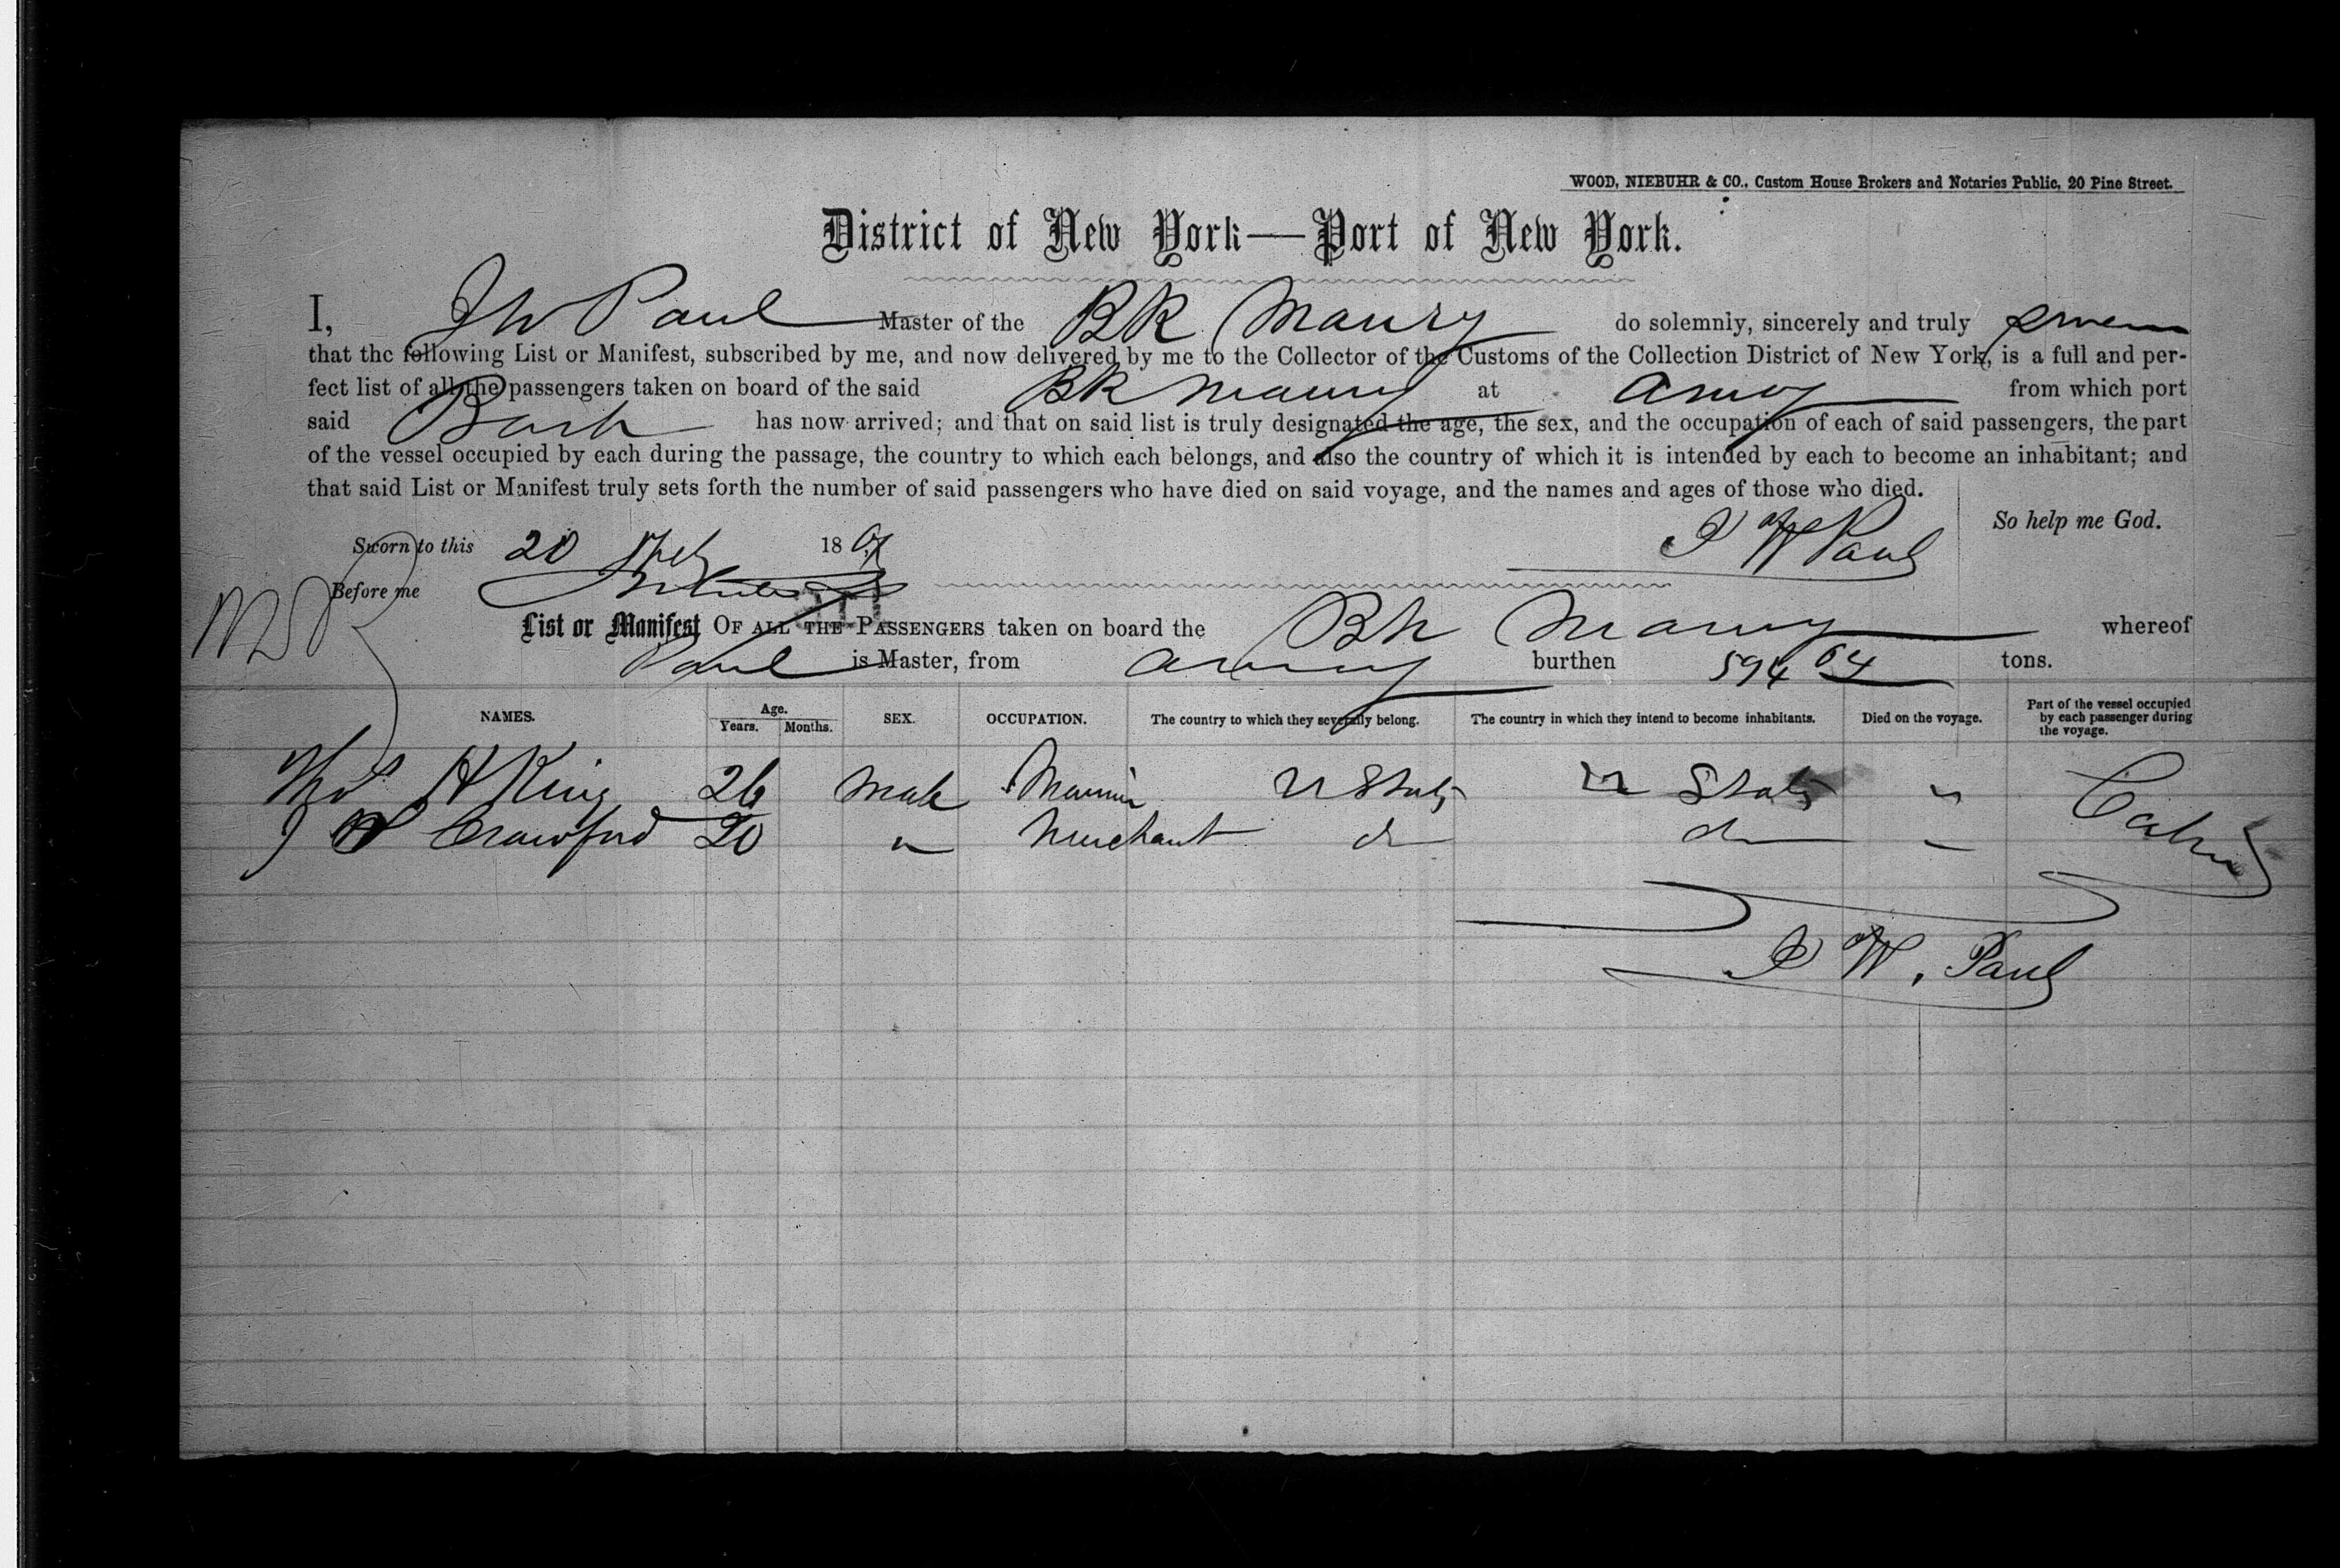 WOOD, NIEBUHR & CO., Custom House Brokers and Notaries Public, 20 Pine Street.
District of New York—Port of New York.
I, J W Paul Master of the BK Maury do solemnly, sincerely and truly swear
that the following List or Manifest, subscribed by me, and now delivered by me to the Collector of the Customs of the Collection District of New York, is a full and per-
fect list of all the passengers taken on board of the said BK Maury at Amoy from which port
said Bark has now arrived; and that on said list is truly designated the age, the sex, and the occupation of each of said passengers, the part
of the vessel occupied by each during the passage, the country to which each belongs, and also the country of which it is intended by each to become an inhabitant; and
that said List or Manifest truly sets forth the number of said passengers who have died on said voyage, and the names and ages of those who died.
So help me God.
Sworn to this 20 Feby 186 J W Paul
Before me
List or Manifest OF ALL THE PASSENGERS taken on board the Bk Maury whereof
Paul is Master, from Amoy burthen 594 64 tons.
NAMES. Age. Years. Months. SEX. OCCUPATION. The country to which they severally belong. The country in which they intend to become inhabitants. Died on the voyage. Part of the vessel occupied by each passenger during the voyage.
Thos H King 26 Male Marin U States U States " Cabin
J Crawford 20 " Merchant do do "
J W. Paul